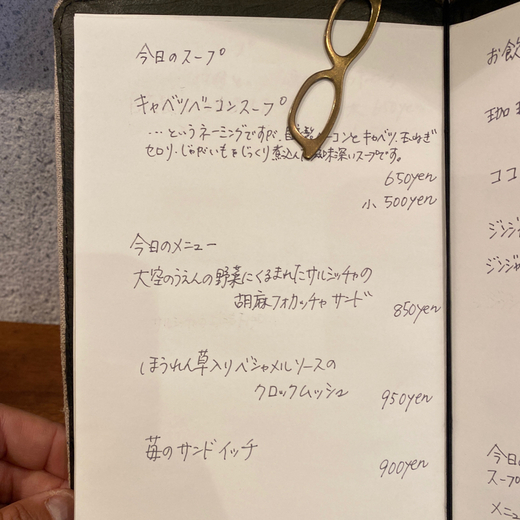 今日のスープ
キャベツベーコンスープ
…というネーミングですが、自家製ベーコンとキャベツ、玉ねぎ
セロリ、じゃがいもをじっくり煮込んだ味深いスープです。
650yen
小 500yen
今日のメニュー
大空のうえんの野菜にくるまれたサルシッチャの
胡麻フォカッチャサンド
850yen
ほうれん草入りベシャメルソースの
クロックムッシュ
950yen
苺のサンドイッチ
900yen
お飲
珈
ココ
ジンジ
ジンジャ
今日
スープ
メニュ